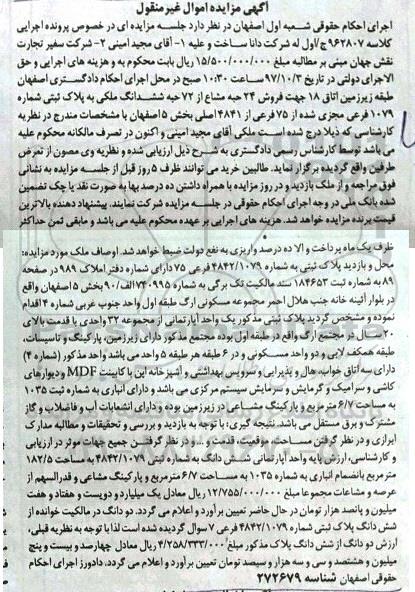 آگهی مزایده اموال غیر منقول
اجرای احکام حقوقی شعبه اول اصفهان در نظر دارد جلسه مزایده ای در خصوص پرونده اجرایی
کلاسه ۹۶۲۸۰۷ ج/اول له شرکت دانا ساخت و علیه ۱- آقای مجید امینی ۲- شرکت سفیر تجارت
نقش جهان مبنی بر مطالبه مبلغ ۱۵/۵۰۰/۰۰۰/۰۰۰ ریال بابت محکوم به و هزینه های اجرایی و حق
الاجرای دولتی در تاریخ ۹۷/۱۰/۳ ساعت ۱۰:۳۰ صبح در محل اجرای احکام دادگستری اصفهان
طبقه زیرزمین اتاق ۱۸ جهت فروش ۲۴ حبه مشاع از ۷۲ حبه ششدانگ ملکی به پلاک ثبتی شماره
۱۰۷۹ فرعی مجزی شده از ۷۵ فرعی از ۴۸۴۱ اصلی بخش ۵ اصفهان با مشخصات مندرج در نظریه
کارشناسی که ذیلا درج شده است ملکی آقای مجید امینی و اکنون در تصرف مالکانه محکوم علیه
می باشد توسط کارشناس رسمی دادگستری به شرح ذیل ارزیابی شده و نظریه وی مصون از تعرض
طرفین واقع گردیده برگزار نماید. طالبین خرید می توانند ظرف ۵ روز قبل از جلسه مزایده به نشانی
فوق مراجعه و از ملک بازدید و در روز مزایده با همراه داشتن ده درصد بها به صورت نقد یا چک تضمین
شده بانک ملی در وجه اجرای احکام حقوقی در جلسه مزایده شرکت نمایند. پیشنهاد دهنده بالاترین
قیمت برنده مزایده خواهد شد. هزینه های اجرایی بر عهده محکوم علیه می باشد و مابقی ثمن حداکثر
ظرف یک ماه پرداخت و الا ده درصد واریزی به نفع دولت ضبط خواهد شد. اوصاف ملک مورد مزایده:
محل و بازدید پلاک ثبتی به شماره ۴۸۴۲/۱۰۷۹ فرعی ۷۵ دارای شماره دفتر املاک ۹۸۹ در صفحه
۸۹ به شماره ثبت ۱۸۴۶۵۳ سند مالکیت تک برگی به شماره ۷۴۰۹۹۵ الف/۹۰ بخش ۵ اصفهان واقع
در بلوار آئینه خانه جنب هلال احمر مجموعه مسکونی ارگ طبقه اول واحد جنوب غربی شماره ۴ اقدام
نموده و مشخص گردید پلاک ثبتی مذکور یک واحد آپارتمانی از مجموعه ۳۲ واحدی با قدمت بالای
۲۰ سال در مجتمع ارگ واقع در طبقه اول بوده مجتمع مذکور دارای زیرزمین، پارکینگ و تاسیسات،
طبقه همکف لابی و دو واحد مسکونی و در ۶ طبقه هر طبقه ۵ واحد می باشد واحد مذکور (شماره ۴)
دارای سه اتاق خواب، هال و پذیرایی و سرویس بهداشتی و آشپزخانه این با کابینت MDF و دیوارهای
کاشی و سرامیک و گرمایش و سرمایش سیستم مرکزی می باشد و دارای انباری به شماره ثبت ۱۰۳۵
به مساحت ۶/۷ مترمربع و پارکینگ مشاعی در زیرزمین بوده و دارای انشعابات آب و فاضلاب و گاز
مشترک و برق مستقل می باشد. نتیجه گیری: با توجه به بازدید و بررسی و تحقیقات و مطالبه مدارک
ابرازی و در نظر گرفتن مساحت، موقعیت، قدمت و ... و در نظر گرفتن جمیع جهات موثر در ارزیابی
و کارشناسی، ارزش پایه واحد آپارتمانی شش دانگ به شماره ثبتی ۴۸۴۲/۱۰۷۹ به مساحت ۱۸۲/۵
مترمربع بانضمام انباری به شماره ۱۰۳۵ به مساحت ۶/۷ مترمربع و پارکینگ مشاعی و قدرالسهم از
عرصه و مشاعات مجموعا مبلغ ۱۲/۷۵۵/۰۰۰/۰۰۰ ریال معادل یک میلیارد و دویست و هفتاد و هفت
میلیون و پانصد هزار تومان در حال حاضر برآورد و اعلام می گردد. دو دانگ در مالکیت خوانده از
شش دانگ پلاک ثبتی شماره ۴۸۴۲/۱۰۷۹ فرعی ۷ سوال گردیده شده است لذا با توجه به نظریه قبلی،
ارزش دو دانگ از شش دانگ پلاک مذکور مبلغ ۴/۲۵۸/۳۳۳/۰۰۰ ریال معادل چهارصد و بیست و پنج
میلیون و هشتصد و سی و سه هزار و سیصد تومان تعیین برآورد و اعلام می گردد. دادورز اجرای احکام
حقوقی اصفهان شناسه ۲۷۲۶۷۹